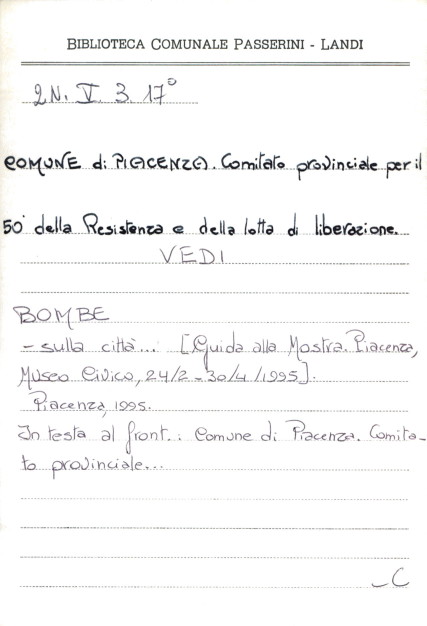 BIBLIOTECA COMUNALE PASSERINI - LANDI
2N. V. 3. 17°
COMUNE di PIACENZA. Comitato provinciale per il
50° della Resistenza e della lotta di liberazione...
VEDI
BOMBE
- sulla città... [Guida alla Mostra. Piacenza,
Museo Civico, 24/2 - 30/4/1995].
Piacenza, 1995.
In testa al front.: Comune di Piacenza. Comita-
to provinciale...
-C